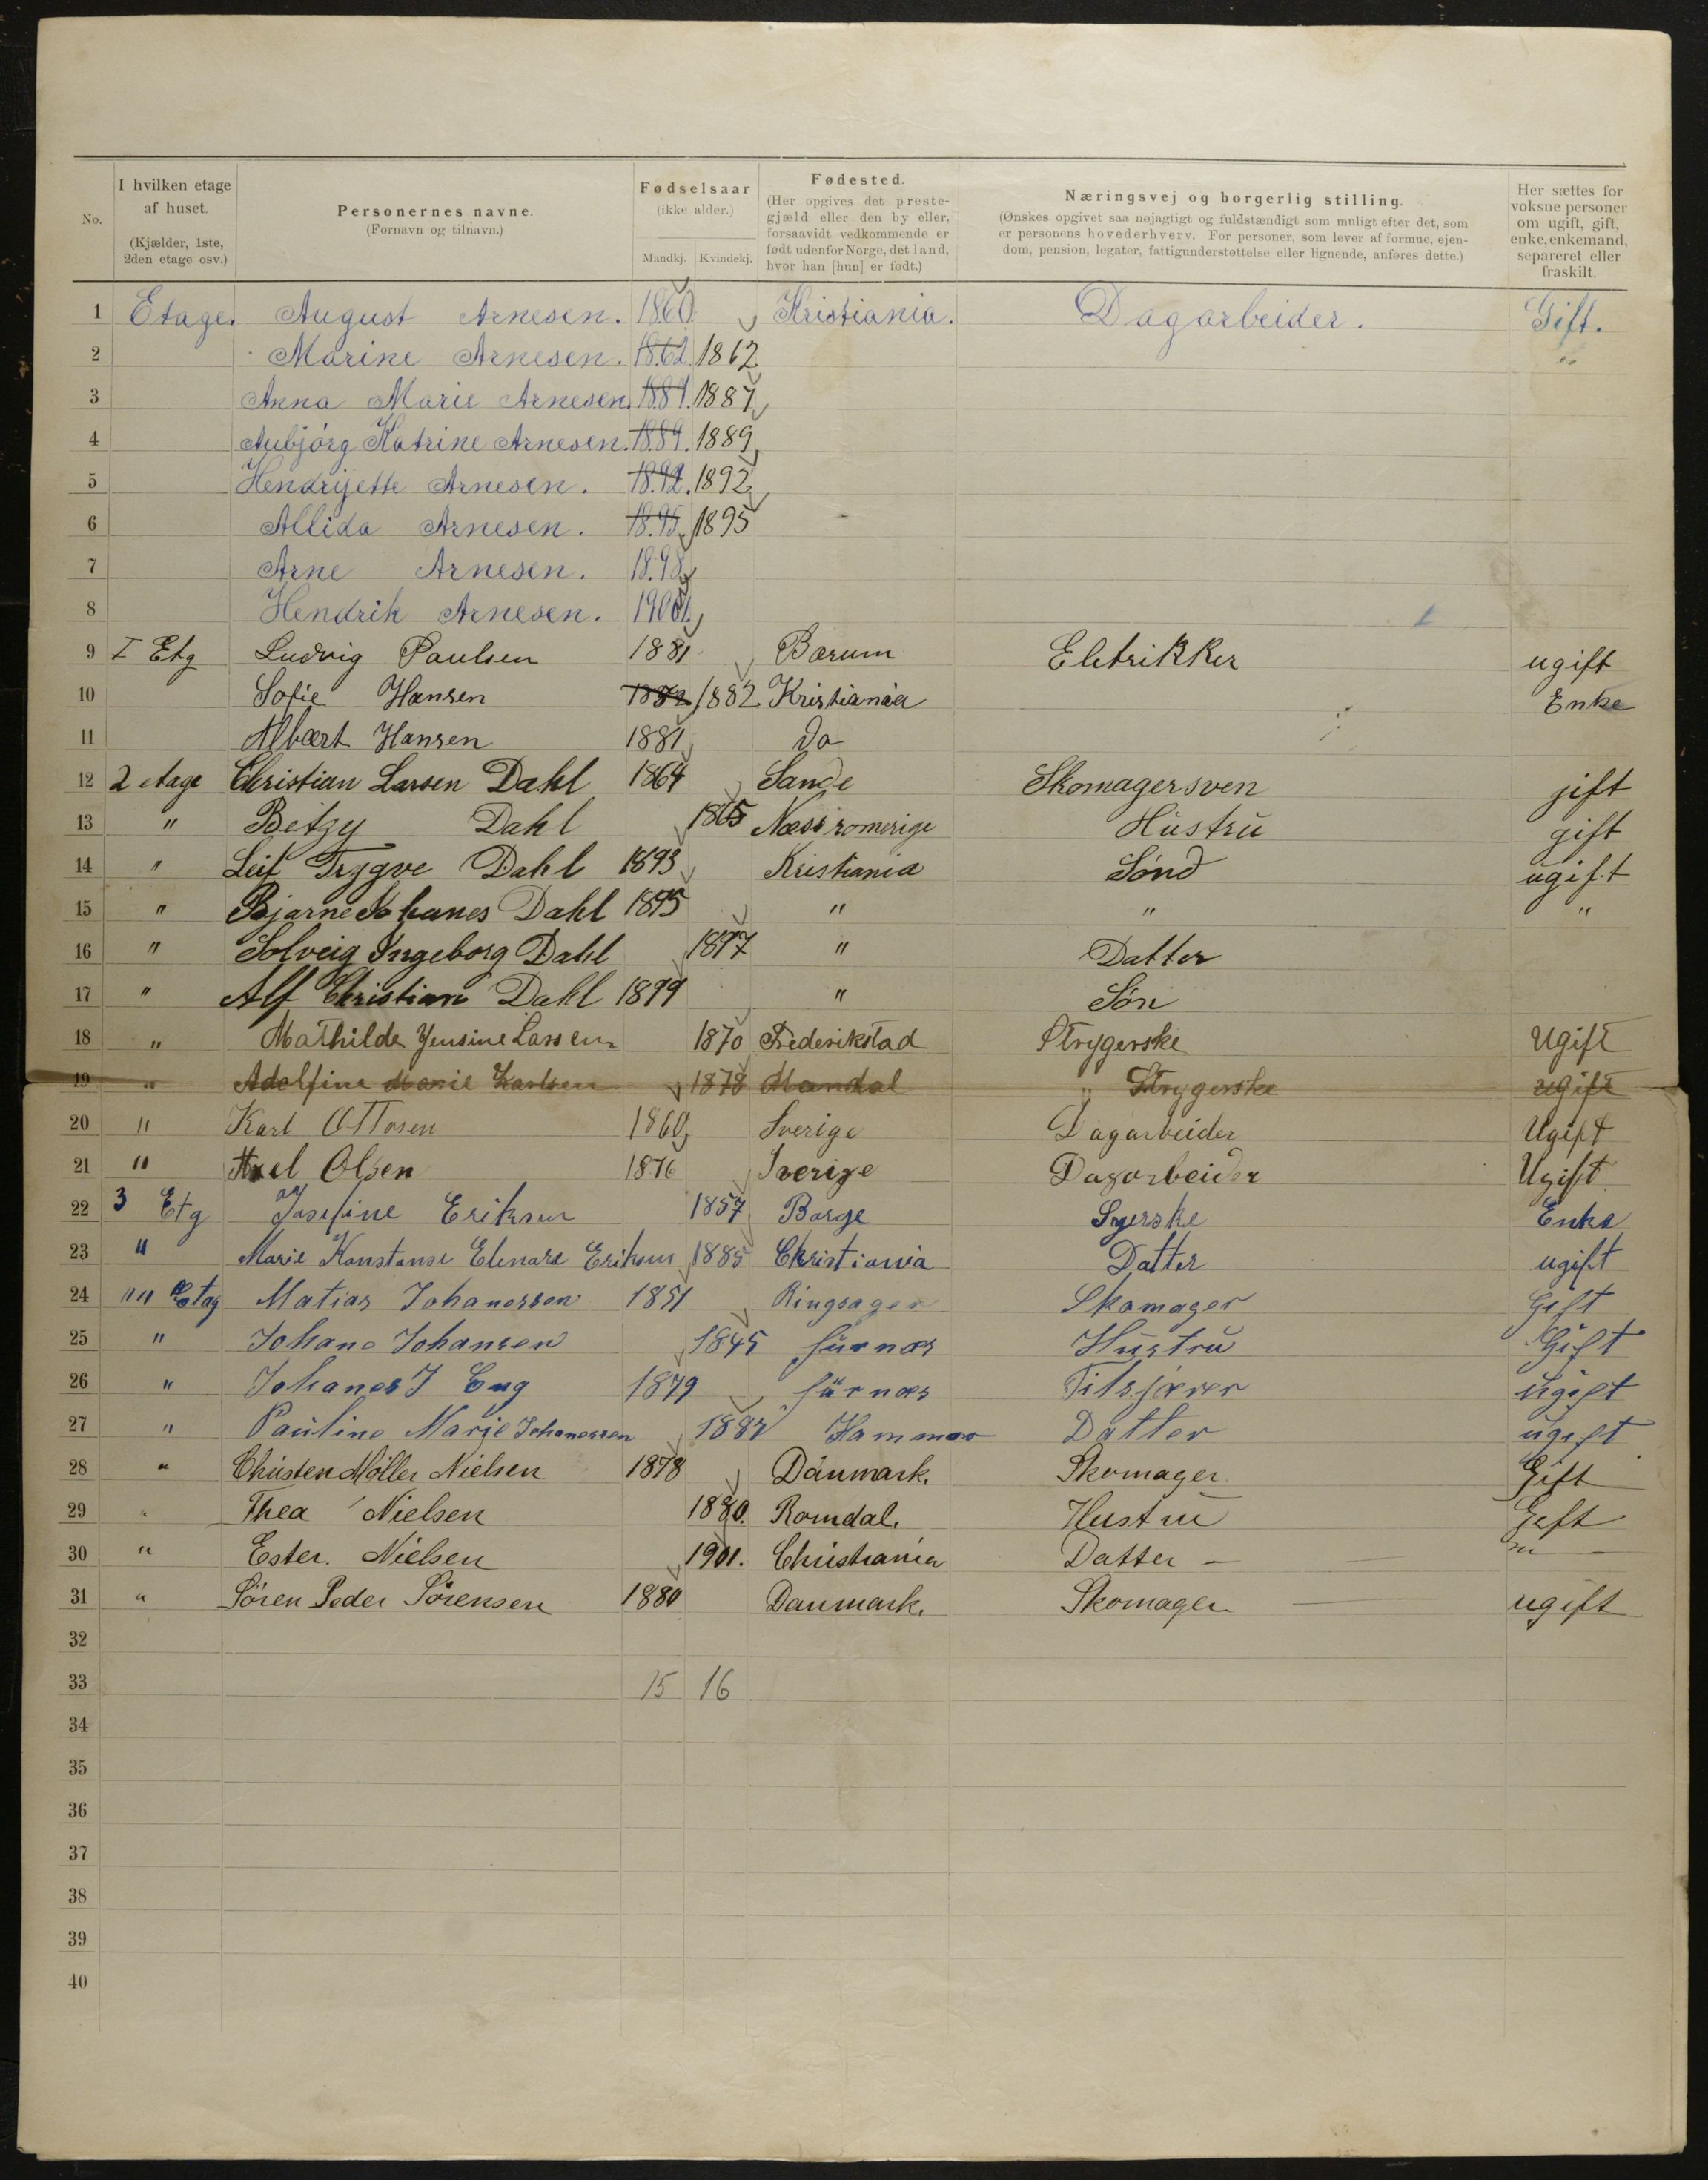 No. I hvilken etage af huset. (Kjælder, 1ste, 2den etage osv.) Personernes navne. (Fornavn og tilnavn.) Fødselsaar (ikke alder.) Mandkj. Kvindekj. Fødested. (Her opgives det prestegjæld eller den by eller, forsaavidt vedkommende er født udenfor Norge, det land, hvor han [hun] er født.) Næringsvej og borgerlig stilling. (Ønskes opgivet saa nøjagtigt og fuldstændigt som muligt efter det, som er personens hovederhverv. For personer, som lever af formue, ejendom, pension, legater, fattigunderstøttelse eller lignende, anføres dette.) Her sættes for voksne personer om ugift, gift, enke, enkemand, separeret eller fraskilt.
1 Etage. August Arnesen. 1860 Kristiania. Dagarbeider. Gift.
2 Marine Arnesen. 1862 1862 "
3 Anna Marie Arnesen. 1887. 1887
4 Aubjórg Katrine Arnesen. 1889. 1889
5 Hendrijette Arnesen. 1892. 1892
6 Allida Arnesen. 1895 1895
7 Arne Arnesen. 1898
8 Hendrik Arnesen. 1901.
9 I Etg Ludvig Paulsen 1881 Barum EletriKKer ugift
10 Sofie Hansen 1882 1882 Kristiania Enke
11 Albært Hansen 1881 do
12 2 etage Christian Larsen Dahl 1864 Sande Skomagersven gift
13 " Betzy Dahl 1865 Næss romerige Hustru gift
14 " Leif Trygve Dahl 1893 Kristiania Sónd ugift
15 " Bjarne Johanes Dahl 1895 " " "
16 " Solveig Ingeborg Dahl 1897 " Datter
17 " Alf Christian Dahl 1899 " Són
18 " Mathilde Jensine Larsen 1870 Frederikstad Strygerske Ugift
19 " Adolfine Marie Karlsen 1878 Mandal " Strygerske ugift
20 " Karl Ottosen 1860 Sverige Dagarbeider Ugift
21 " Axel Olsen 1876 Sverige Dagarbeider Ugift
22 3 Etg Josefine Eriksen 1857 Borge Syerske Enke
23 " Marie Konstanse Elenare Eriksen 1885 Christiania Datter ugift
24 "" Etag Matias Johanessen 1851 Ringsager Skomager Gift
25 " Johane Johansen 1845 furnæs Hustru Gift
26 " Johanes J Eng 1879 furnæs Tilsjærer ugift
27 " Pauline Marie Johanessen 1887 Hammar Datter ugift
28 " Christen Möller Nielsen 1878 Danmark. Skomager Gift
29 " Thea Nielsen 1880. Romdal. Hustru Gift
30 " Ester. Nielsen 1901. Christiania Datter —
31 " Sören Peder Sörensen 1880 Danmark. Skomager ugift
32
33 15 16
34
35
36
37
38
39
40